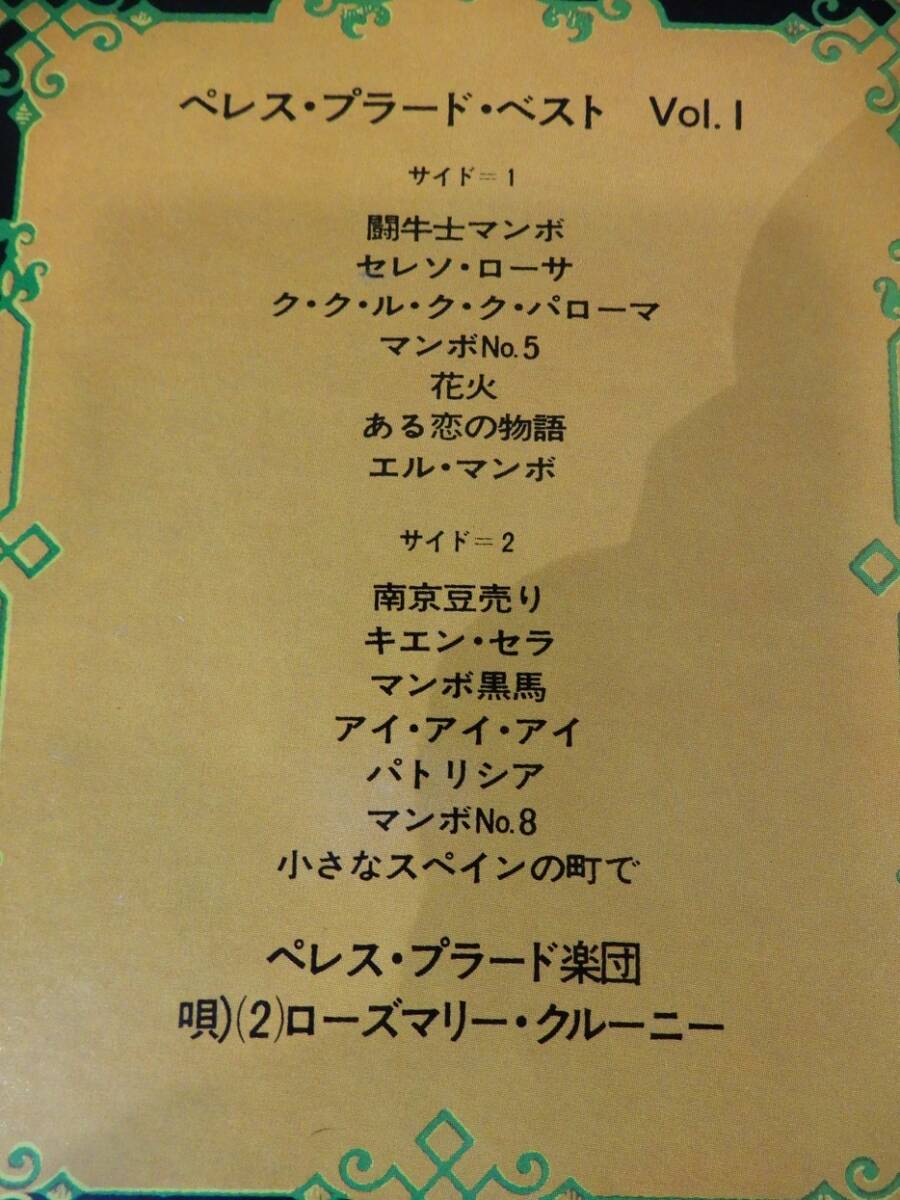 ペレス・プラード・ベスト Vol. I
サイド=1
闘牛士マンボ
セレソ・ローサ
ク・ク・ル・ク・ク・パローマ
マンボNo.5
花火
ある恋の物語
エル・マンボ
サイド=2
南京豆売り
キエン・セラ
マンボ黒馬
アイ・アイ・アイ
パトリシア
マンボNo.8
小さなスペインの町で
ペレス・プラード楽団
唄)(2)ローズマリー・クルーニー